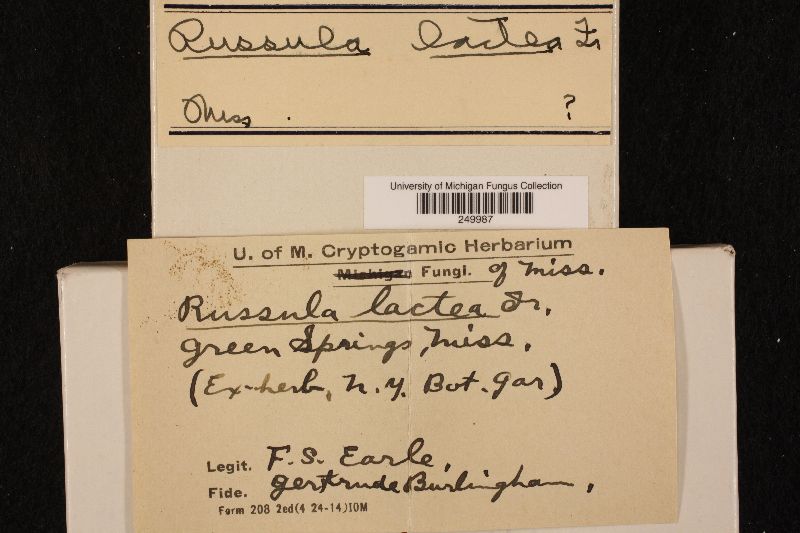 Russula lactea Fr
Miss. ?
University of Michigan Fungus Collection
249987
U. of M. Cryptogamic Herbarium
Michigan Fungi. of Miss.
Russula lactea Fr.
Green Springs, Miss.
(Ex-herb, N.Y. Bot. Gar)
Legit. F.S. Earle,
Fide. Gertrude Burlingham,
Form 208 2ed(4 24-14)10M